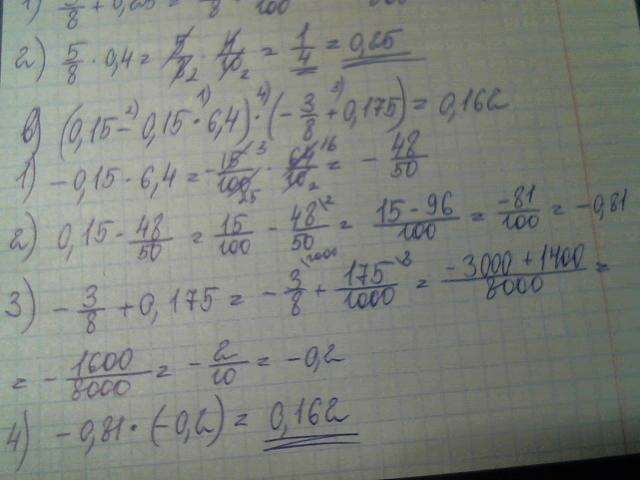 1) 5/8 + 0,625 =
2) 5/8 · 0,4 = 5/8 2 · 4/10 2 = 1/4 = 0,25
в) (0,15 -2) 0,15 ·1) 6,4) ·4) (- 3/8 +3) 0,175) = 0,162
1) -0,15 · 6,4 = - 15 3/100 25 · 64 16/10 2 = - 48/50
2) 0,15 - 48/50 = 15/100 - 48\2/50 = 15 - 96/100 = -81/100 = -0,81
3) - 3/8 + 0,175 = - 3\1000/8 + 175\8/1000 = -3000 + 1400/8000 =
= - 1600/8000 = - 2/10 = -0,2
4) -0,81 · (-0,2) = 0,162